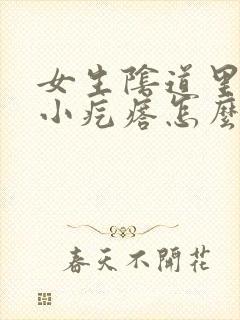 女生陰道里
小疙瘩怎麼
春天不開花